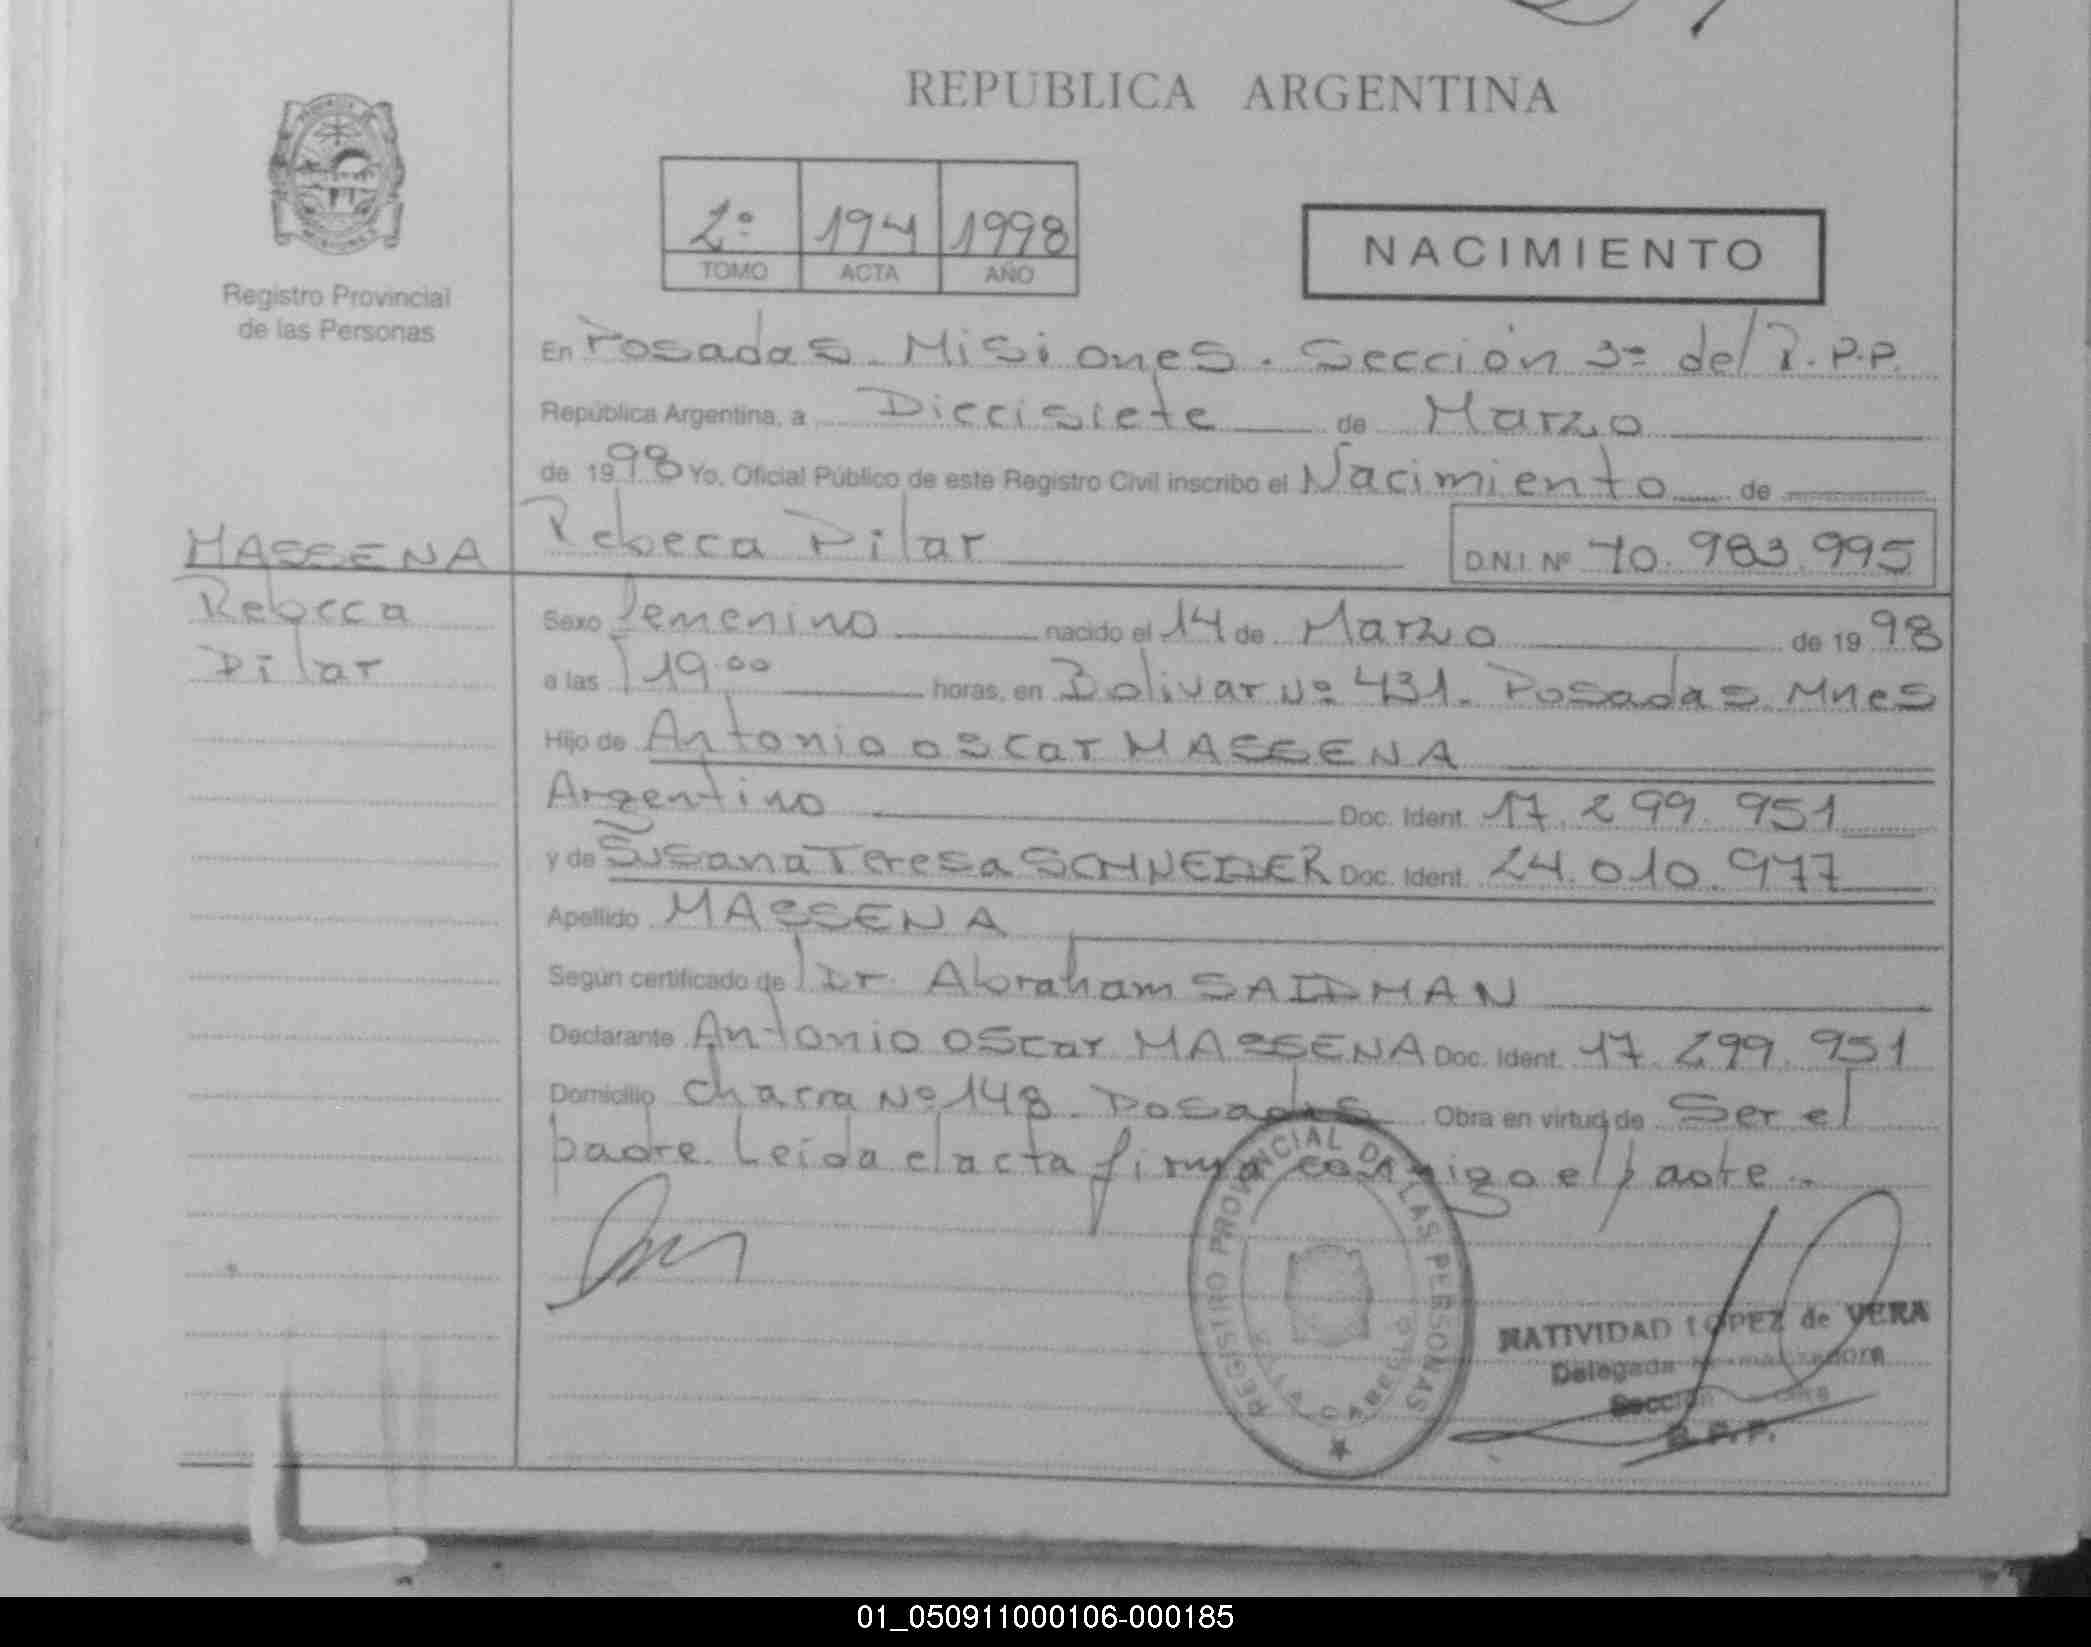 REPUBLICA ARGENTINA
2º 194 1998
TOMO ACTA AÑO
NACIMIENTO
Registro Provincial
de las Personas
En Posadas Misiones. Sección 3ª del R.P.P.
República Argentina, a Diecisiete de Marzo
de 1998 Yo, Oficial Público de este Registro Civil inscribo el Nacimiento de
MASSENA
Rebeca Pilar D.N.I. Nº 40.983.995
Rebeca
Pilar
Sexo femenino nacido el 14 de Marzo de 1998
a las 19.00 horas, en Bolivar Nº 431. Posadas Mnes
Hijo de Antonio oscar MASSENA
Argentino Doc. Ident. 17.299.951
y de Susana Teresa SCHNEIDER Doc. Ident. 24.010.977
Apellido MASSENA
Según certificado de Dr. Abraham SAIDMAN
Declarante Antonio Oscar MASSENA Doc. Ident. 17.299.951
Domicilio Chacra Nº 148. Posadas Obra en virtud de Ser el
padre. Leida el acta firma conmigo el padre.
REGISTRO PROVINCIAL DE LAS PERSONAS
VILLA CABELLO
NATIVIDAD LOPEZ de VERA
Delegada
Sección
R.P.P.
01_050911000106-000185